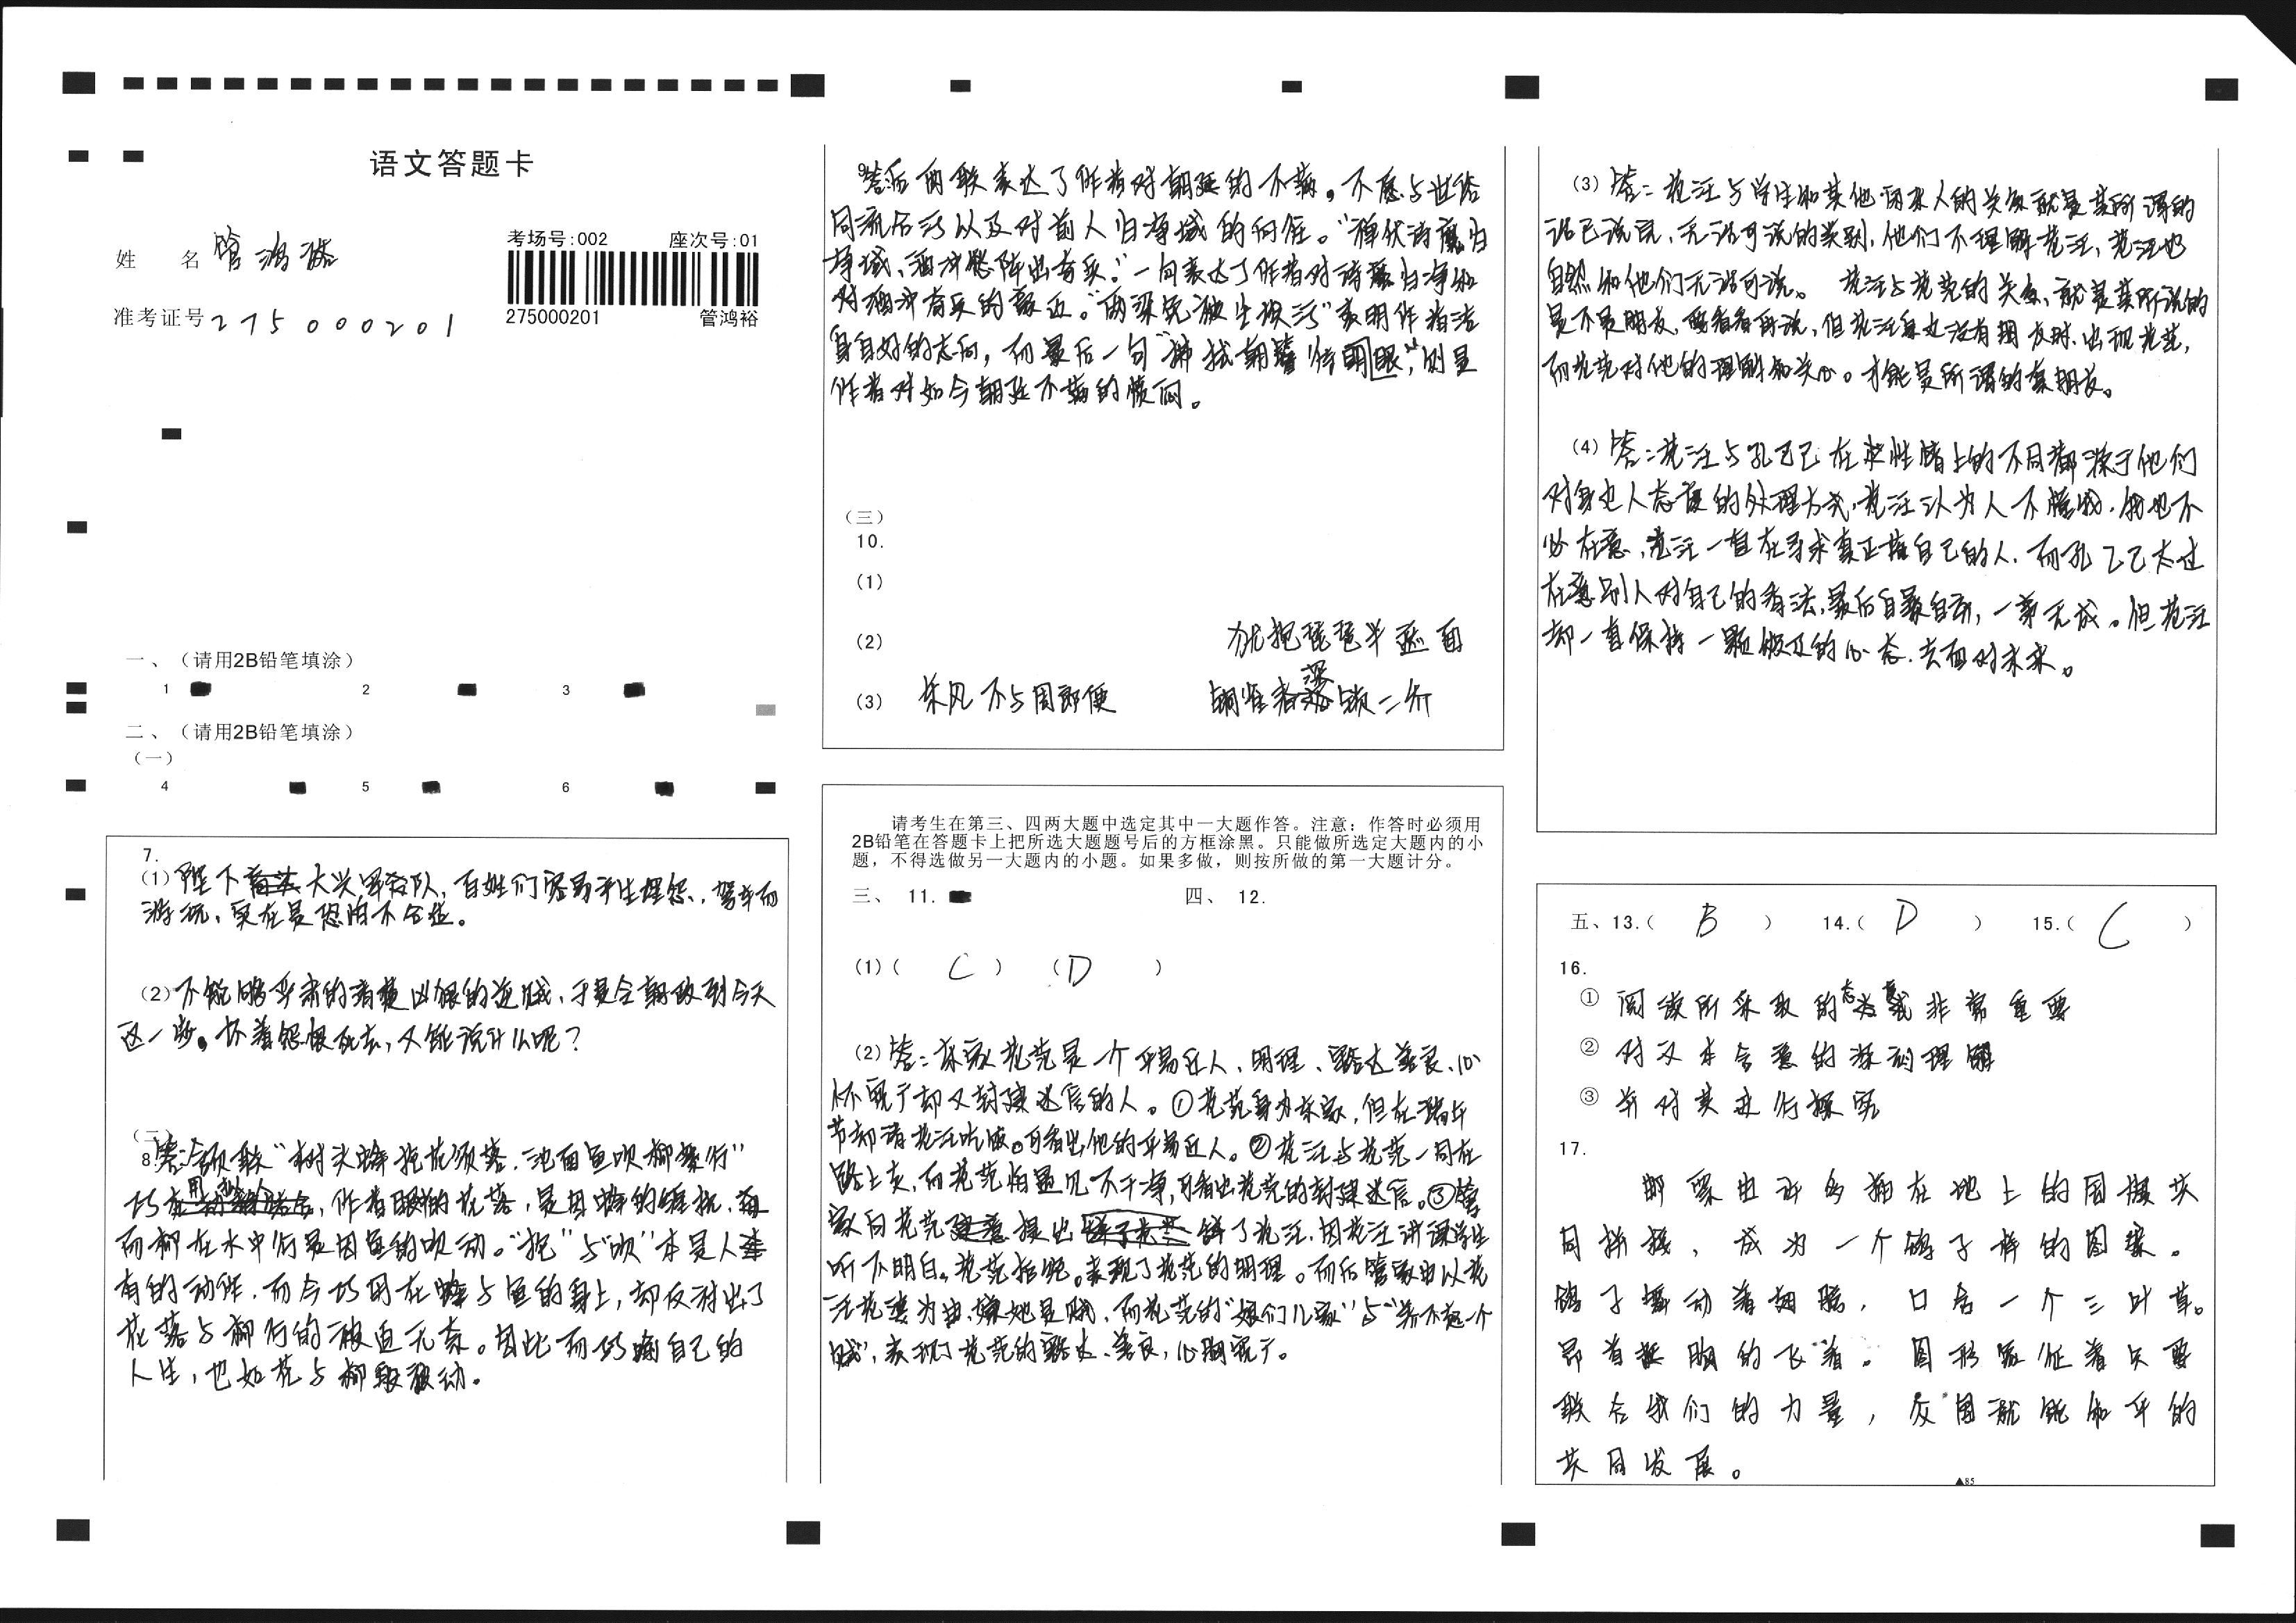 语文答题卡
姓 名 管鸿裕
准考证号 275000201
考场号:002 座次号:01
275000201 管鸿裕
一、（请用2B铅笔填涂）
1 2 3
二、（请用2B铅笔填涂）
（一）
4 5 6
7.
(1) 陛下 大兴军队，百姓们容易产生埋怨，驾车而
游玩，实在是恐怕不合适。
(2) 不能 肃的清楚凶狠的逆贼，于是令朝政到今天
这一步。怀着怨恨死去，又能说什么呢？
（二）
8. 答：颔联“树头蜂抱花须落，池面鱼吹柳絮行”
巧用 ，作者眼前的花落，是因蜂的 ，
而柳在水中行是因鱼的吹动。“抱”与“吹”本是人
有的动作，而今巧用在蜂与鱼的身上，却反衬出了
花落与柳行的被迫无奈。因此而巧喻自己的
人生，也如花与柳 被动。
9. 答：后两联表达了作者对朝廷的不满，不愿与世俗
同流合污以及对前人归净域的向往。“禅伏诗魔归
净域，酒冲愁阵出奇兵。”一句表达了作者对诗魔归净和
对酒冲奇兵的 。“两梁免被尘埃污”表明作者洁
身自好的志向，而最后一句“拂拭朝簪待眼明”，则是
作者对如今朝廷不满的愤闷。
（三）
10.
(1)
(2) 犹抱琵琶半遮面
(3) 东风不与周郎便 铜雀春深锁二乔
请考生在第三、四两大题中选定其中一大题作答。注意：作答时必须用
2B铅笔在答题卡上把所选大题题号后的方框涂黑。只能做所选定大题内的小
题，不得选做另一大题内的小题。如果多做，则按所做的第一大题计分。
三、 11. 四、 12.
(1)（ C ） （ D ）
(2) 答：东家范莞是一个平易近人、明理、豁达善良、心
怀宽广却又封建迷信的人。①范莞身为东家，但在端午
节却请范汪吃饭。可看出他的平易近人。②范汪与范莞一同在
路上走，而范莞怕遇见不干净，可看出范莞的封建迷信。③管
家向范莞 提出 辞了范汪，因范汪讲课学生
听不明白。范莞拒绝。表现了范莞的明理。而后管家由以范
汪范 为由，嫌她是贼，而范莞的“娘们儿家”与“养不起一个
贼”，表现了范莞的豁达、善良，心胸宽广。
(3) 答：范汪与学生和其他因来人的关系就是其所谓的
话已说完，无话可说的类别，他们不理解范汪，范汪也
自然和他们无话可说。 范汪与范莞的关系，就是其所说的
是不是朋友，要看看再说，但范汪身边没有朋友时，出现范莞，
而范莞对他的理解和关心。才能是所谓的真朋友。
(4) 答：范汪与孔乙己在性情上的不同都源于他们
对身边人态度的处理方式，范汪认为人不懂我，我也不
必在意，范汪一直在寻求真正懂自己的人，而孔乙己太过
在意别人对自己的看法，最后自暴自弃，一事无成。但范汪
却一直保持一颗 的心态，去面对未来。
五、13.（ B ） 14.（ D ） 15.（ C ）
16.
① 阅读所采取的态度非常重要
② 对文本含意的深刻理解
③ 并对其进行探究
17.
邮票由许多拥在地上的圆模共
同拼接，成为一个鸽子样的图案。
鸽子扇动着翅膀，口含一个三叶草。
昂首挺胸的飞着。圆形象征着只要
联合我们的力量，各国就能和平的
共同发展。
▲85